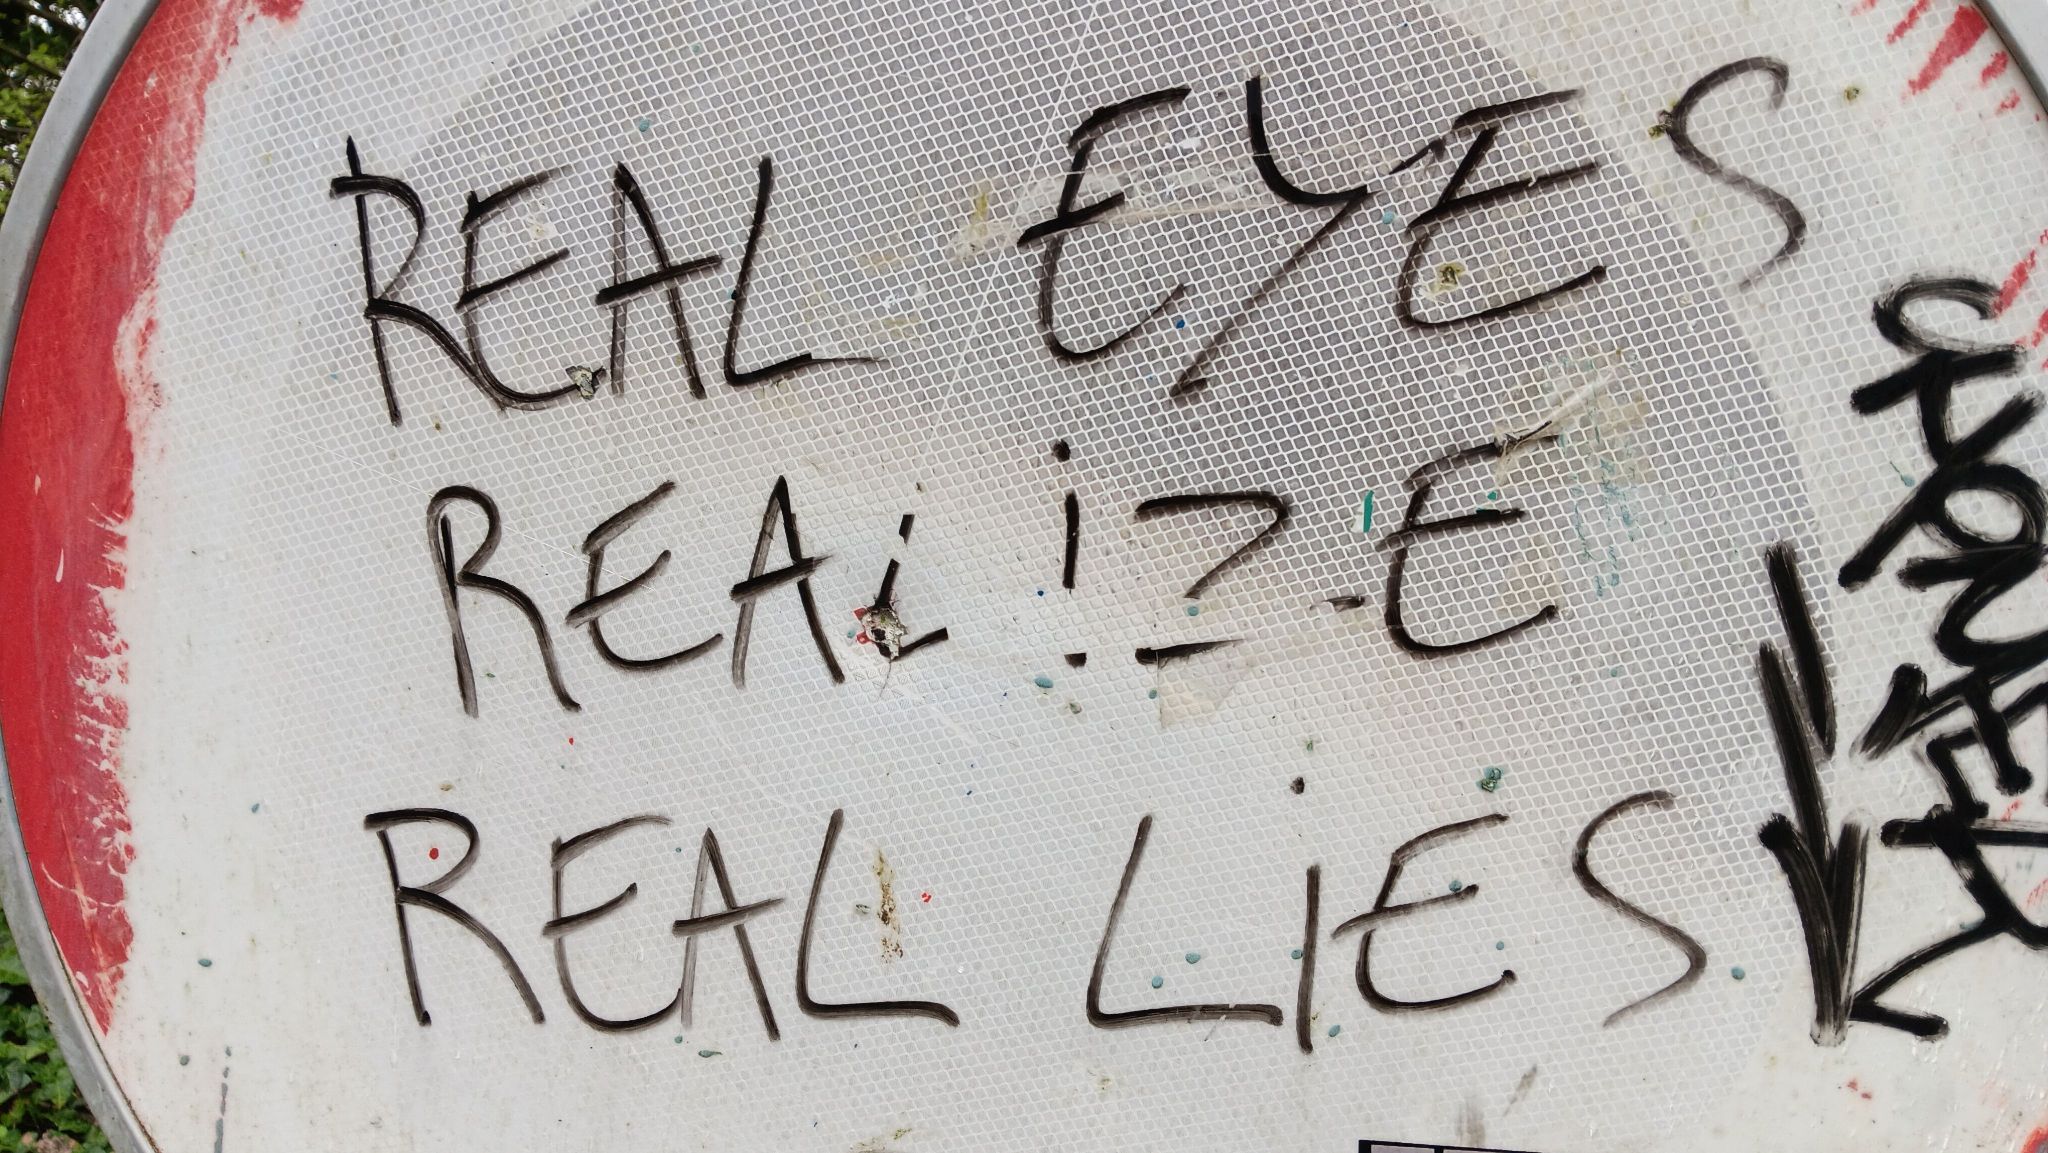 REAL EYES
REALiZE
REAL LiES